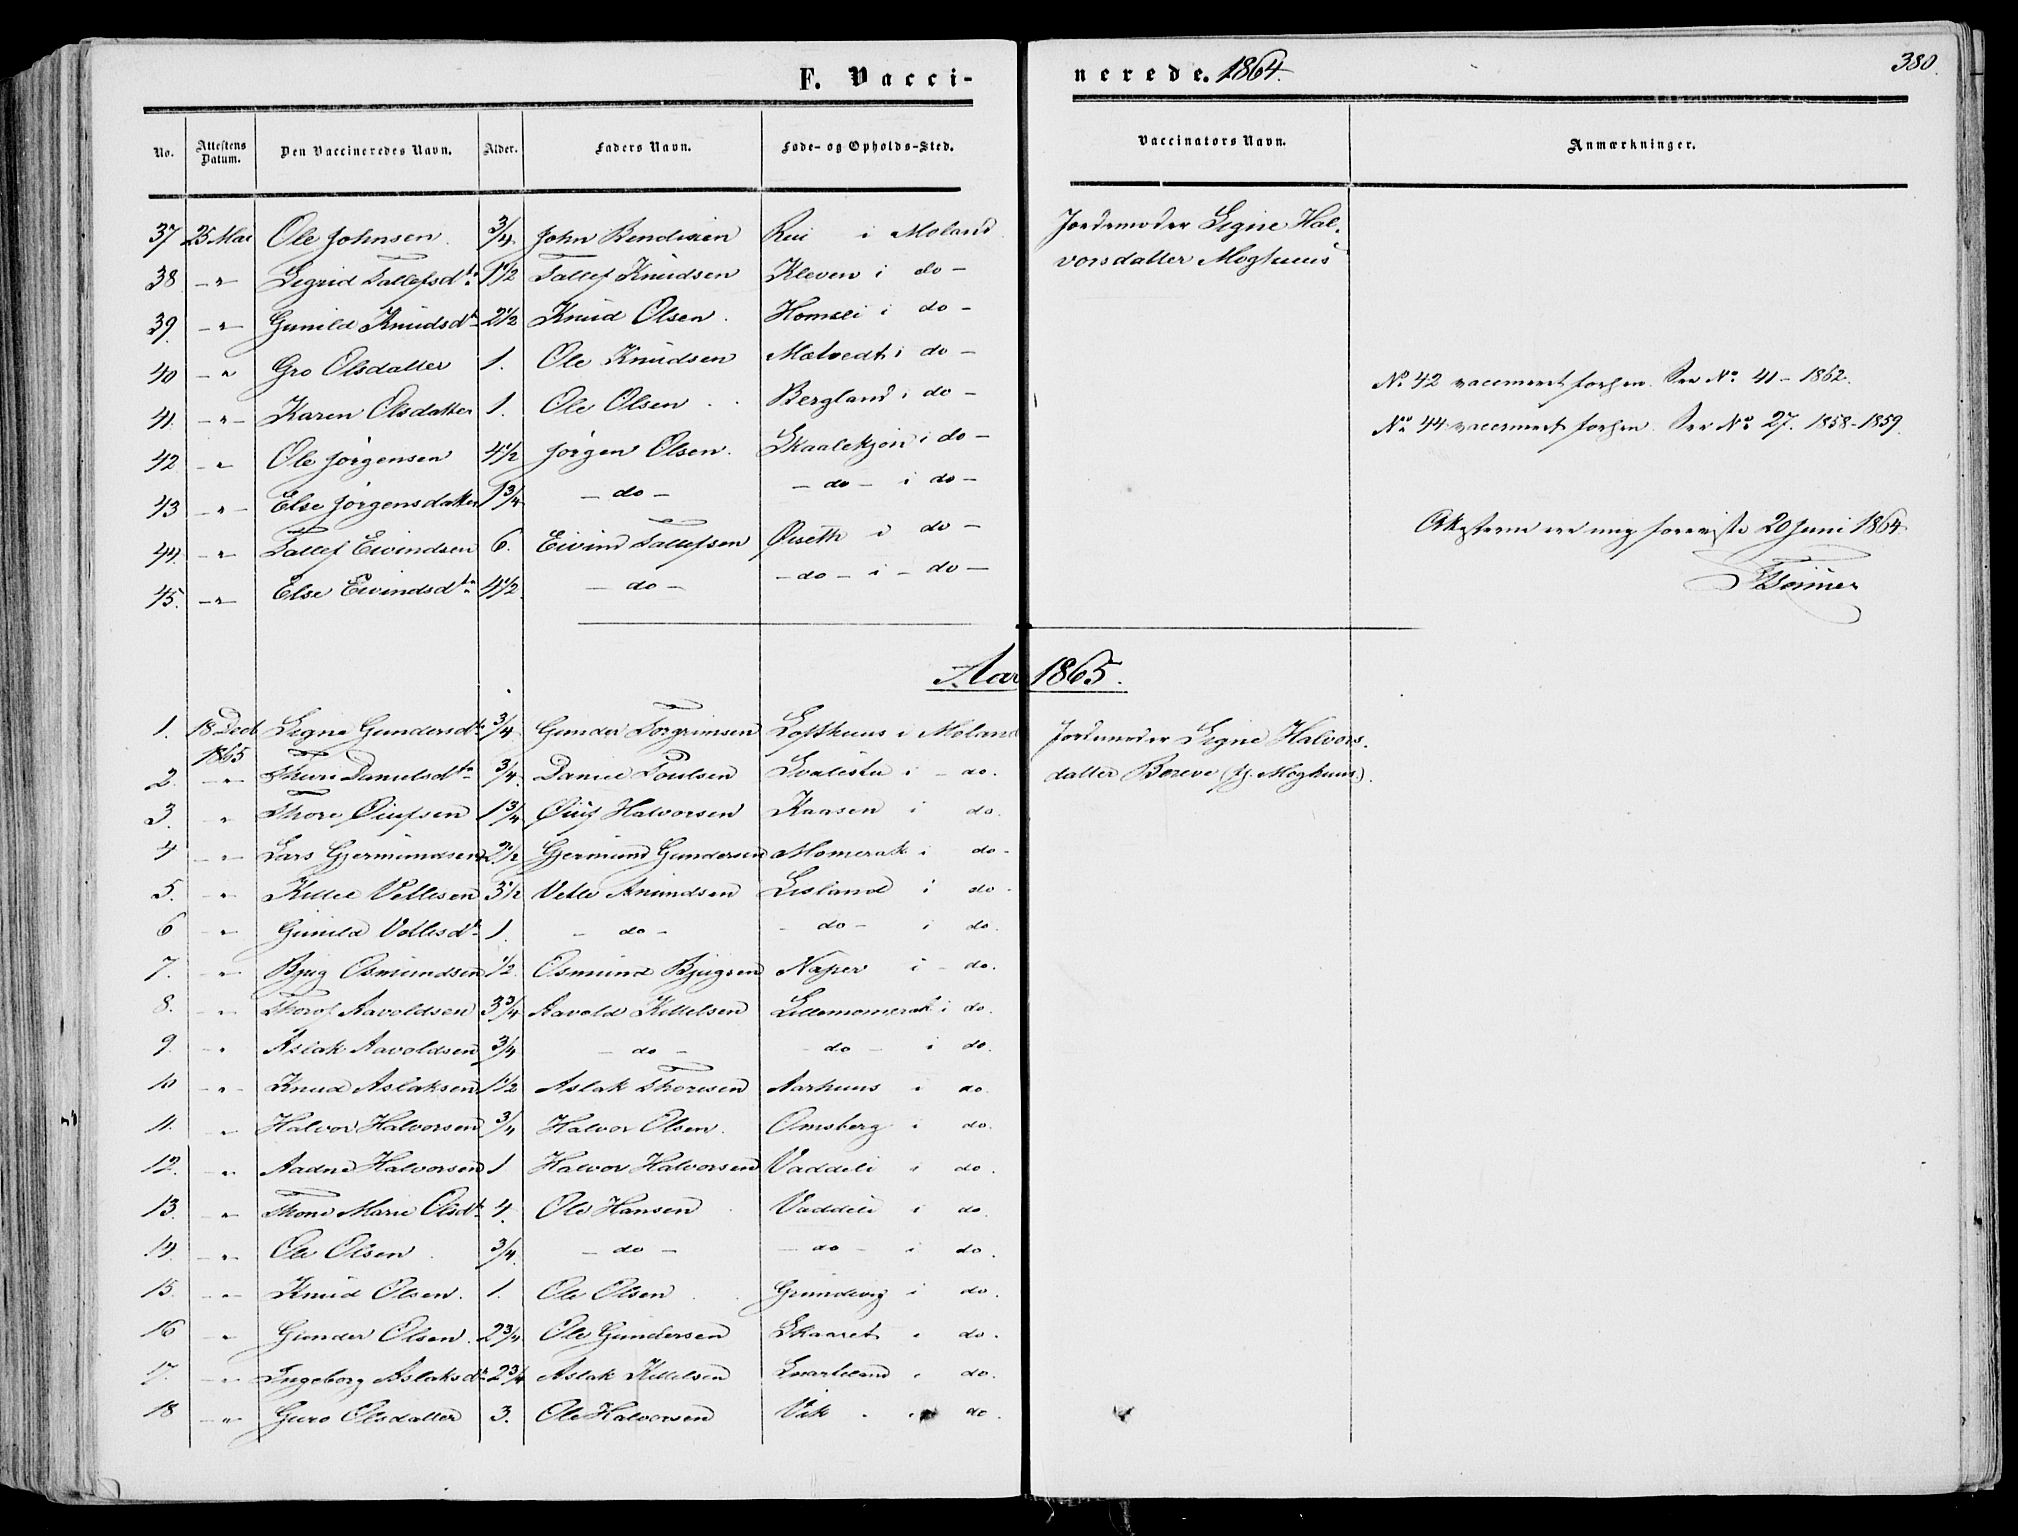 F. Vacci-
nerede. 1864.
380.
No. Attestens Datum. Den Vaccineredes Navn. Alder. Faders Navn. Føde- og Opholds-Sted. Vaccinators Navn. Anmærkninger.
37 25 Mai Ole Johnsen. 3/4 John Bendixen Rui i Moland Jordemoder Signe Hal-
38 -"- Sigrid Tallefsdtr 1 1/2 Tallef Knudsen Kleven i do- vorsdatter Moghuus
39. -"- Gunild Knudsdtr 2 1/2 Knud Olsen. Homlei i do-
40 -"- Gro Olsdatter 1. Ole Knudsen i do-
No 42 vaccineret forhen. See No 41 - 1862.
41. -"- Karen Olsdatter 1. Ole Olsen Bergland i do-
No 44 vaccineret forhen. See No 27. 1858-1859.
42 -" Ole Jørgensen 4 1/2 Jørgen Olsen. Skaalekjøn i do-
43 -"- Else Jørgensdatter 1 3/4 -do- -do- i do-
44. -" Tallef Eivindsen 6. Eivind Tallefsen Øiseth i do-
Attesterne ere mig foreviste 20 Juni 1864
45. -"- Else Eivindsdtr 4 1/2 -do- -do- i -do-
Aar 1865.
1. 18 Decb 1865 Signe Gundersdtr 3/4 Gunder Torgrimsen Lofthuus i Moland Jordemoder Signe Halvors-
2. -"- Thuri Danielsdtr 3/4. Daniel Poulsen i -do. datter Boreve (f. Moghuus).
3. " Thore Øiufsen 1 3/4 Øiuf Halvorsen Kaasen i do.
4 -"- Lars Gjermundsen 2 1/2 Gjermund Gundersen Momerak i do-
5. -"- Kittel Vetlesen 3 1/2 Vetle Anundsen Lisland i do-
6 -"- Gunild Vetlesdtr 1. -do- -do- i do.
7. -"- Bjug Osmundsen 1/2. Osmund Bjugsen Naper i -do.
8. -"- Thorof Aavoldsen 3 3/4 Aavold Kittelsen Lillemomerak i do.
9. " Aslak Aavoldsen 3/4 -do- -do- i do.
10 -"- Knud Aslaksen 1 1/2 Aslak Thoresen Aarhuus i do.
11. -" Halvor Halvorsen 3/4 Halvor Olsen. Omsberg i do.
12. -"- Aadne Halvorsen 1 Halvor Halvorsen Vaddeli i do.
13. -"- Thone Marie Olsdtr 4. Ole Hansen Vaddeli i do.
14. -"- Ole Olsen. 3/4. -do- -do- i do.
15. -"- Knud Olsen. 1. Ole Olsen Grundvig i do.
16 -" Gunder Olsen. 2 3/4 Ole Gundersen Skaaret i do.
17. -"- Ingeborg Aslaksdtr 2 3/4 Aslak Kittelsen i do.
18 -"- Guro Olsdatter 3. Ole Halvorsen Vik. i do.